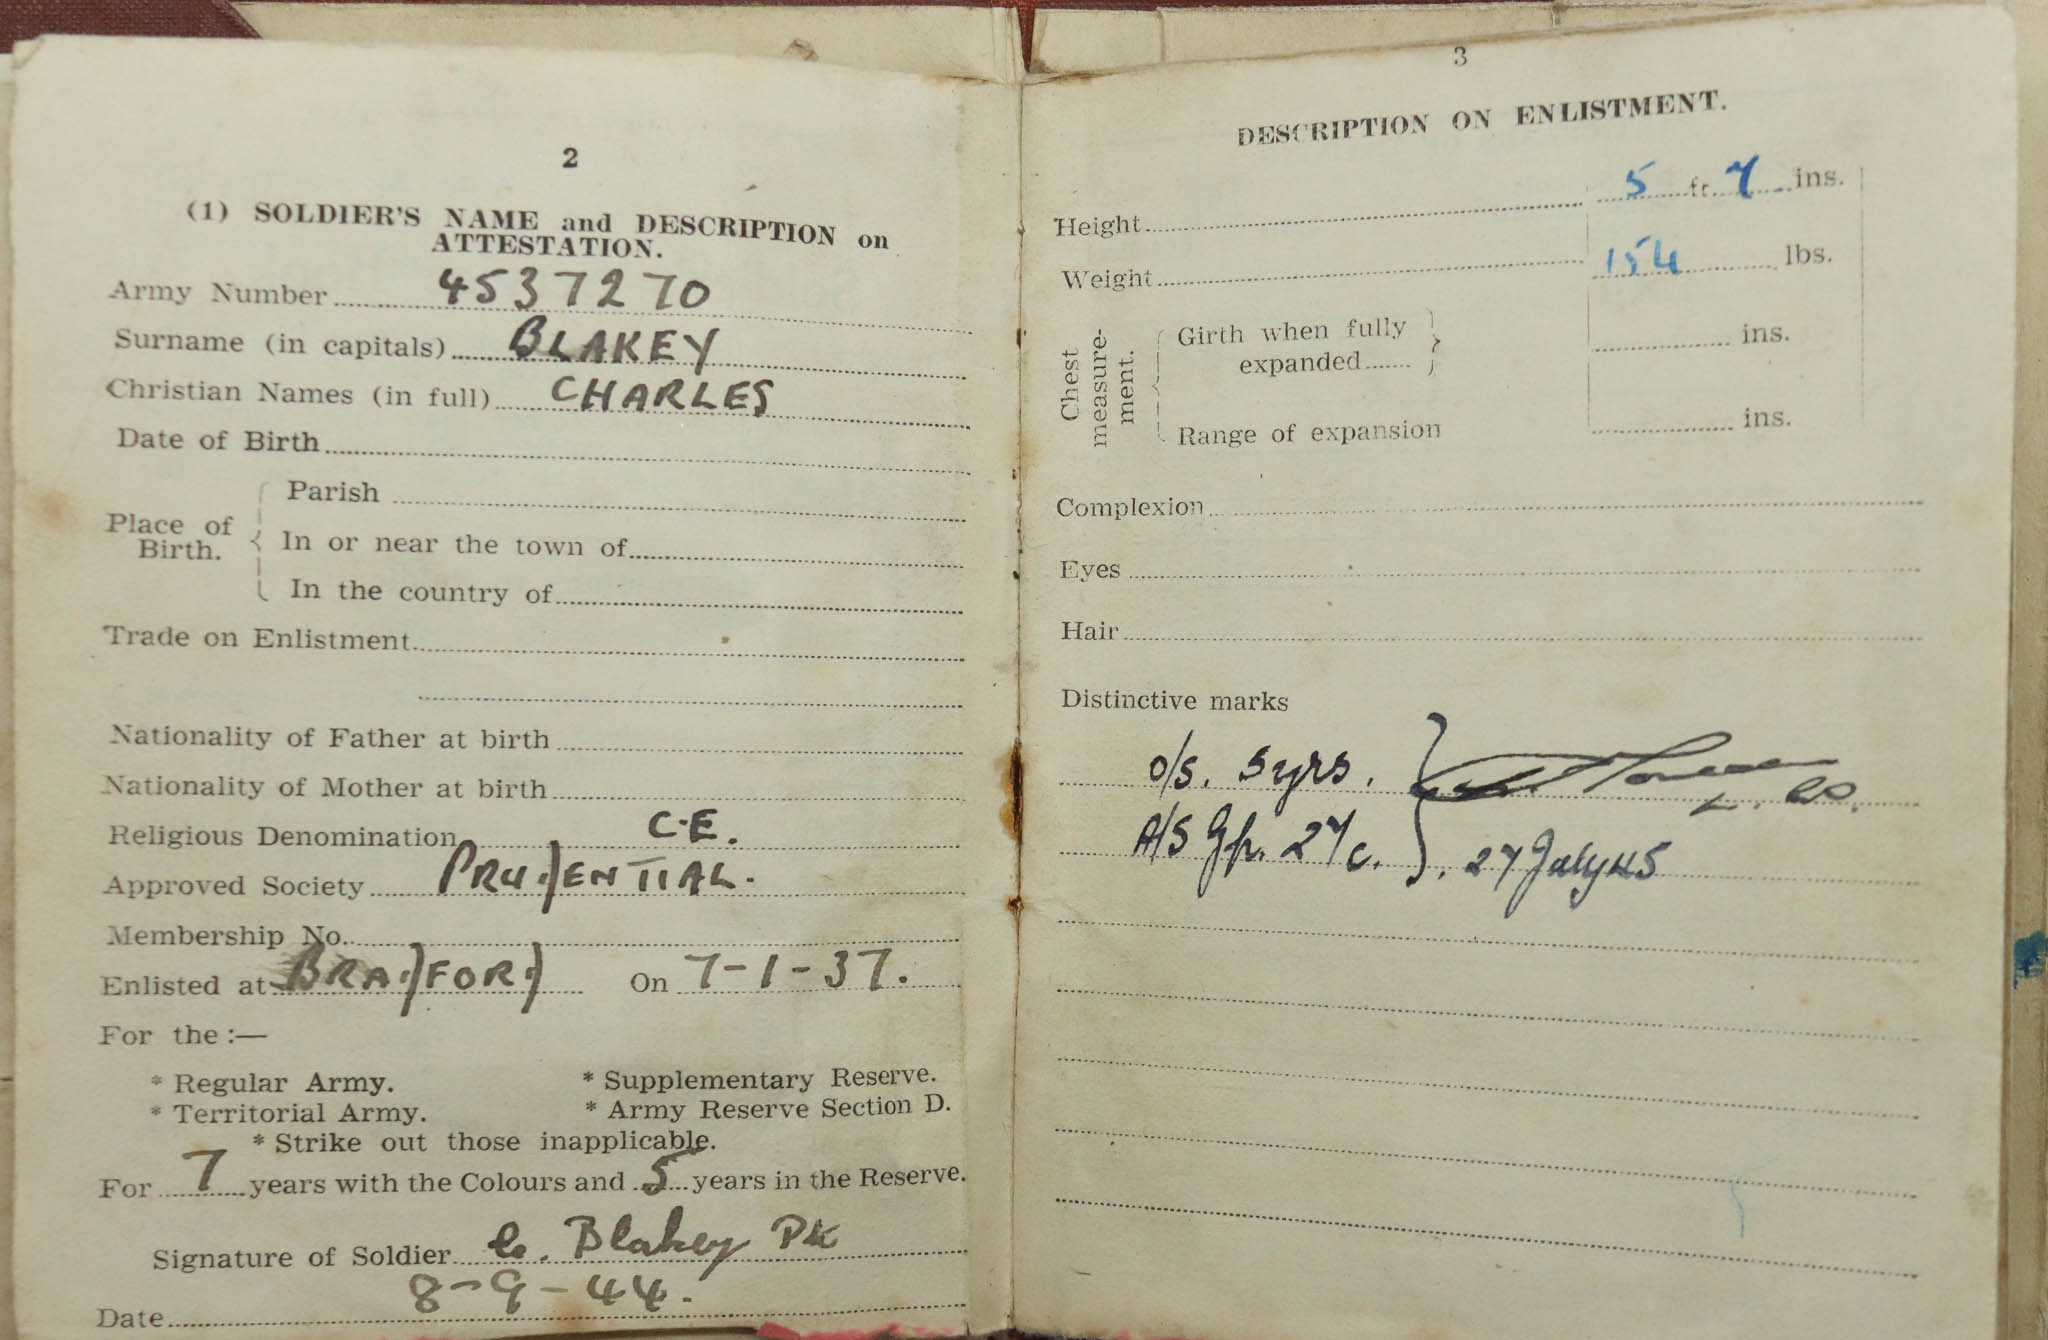 2
(1) SOLDIER'S NAME and DESCRIPTION on
ATTESTATION.
Army Number 4537270
Surname (in capitals) BLAKEY
Christian Names (in full) CHARLES
Date of Birth
Place of Birth.
Parish
In or near the town of
In the country of
Trade on Enlistment
Nationality of Father at birth
Nationality of Mother at birth
Religious Denomination C.E.
Approved Society PRUDENTIAL.
Membership No.
Enlisted at BRADFORD On 7-1-37.
For the:—
* Regular Army. * Supplementary Reserve.
* Territorial Army. * Army Reserve Section D.
* Strike out those inapplicable.
For 7 years with the Colours and 5 years in the Reserve.
Signature of Soldier C. Blakey
Date 8-9-44.
3
DESCRIPTION ON ENLISTMENT.
Height 5 ft. 7 ins.
Weight 154 lbs.
Chest measure-ment.
Girth when fully
expanded ins.
Range of expansion ins.
Complexion
Eyes
Hair
Distinctive marks
O/S. 5yrs.
A/S Gp. 27c. 27 July 45